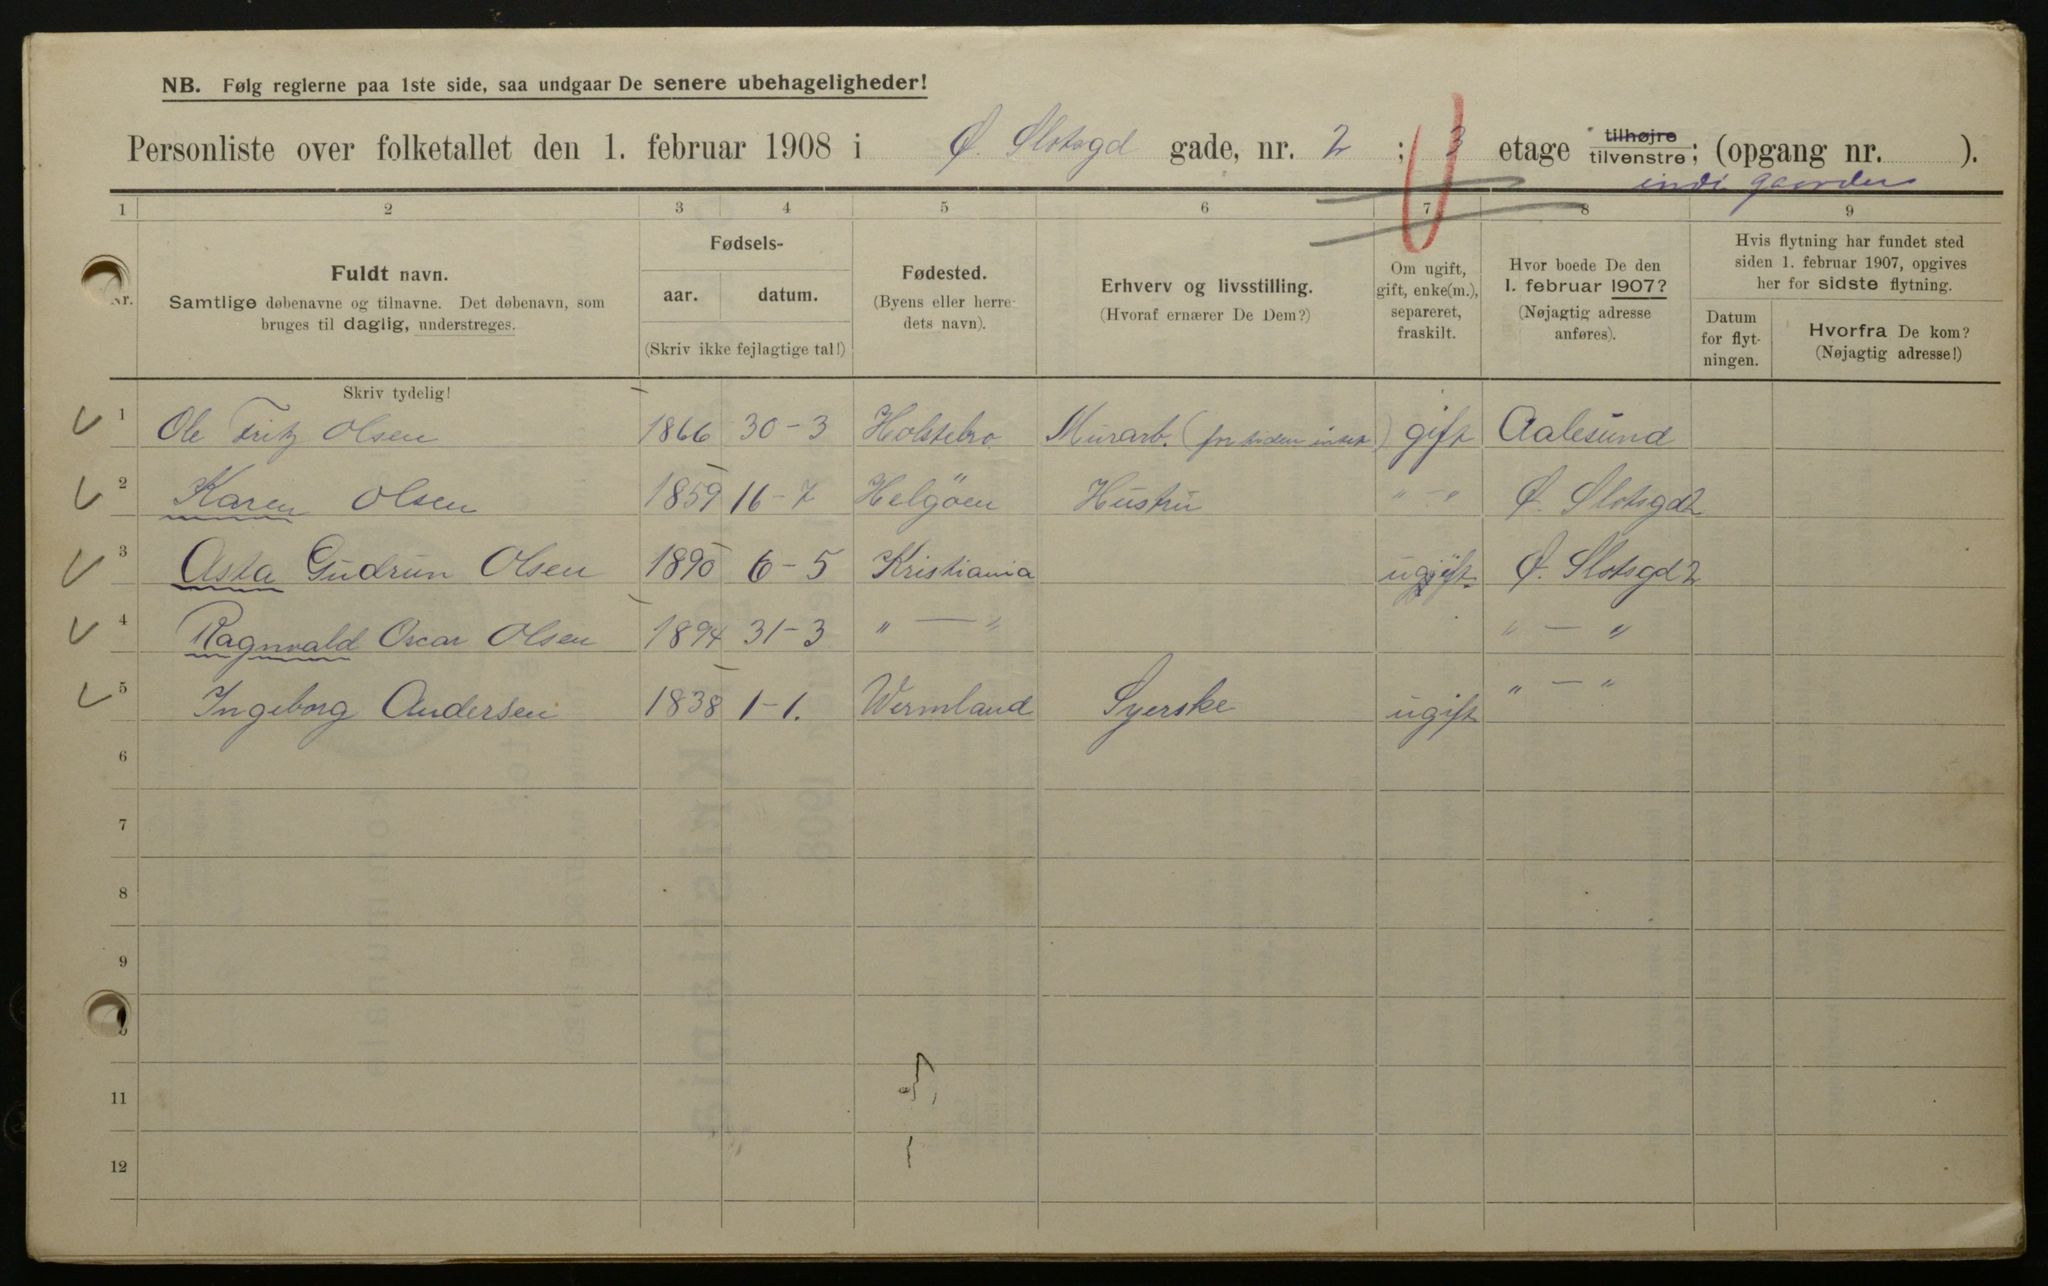 NB. Følg reglerne paa 1ste side, saa undgaar De senere ubehageligheder!
Personliste over folketallet den 1. februar 1908 i Ø. Slotsgd gade, nr. 2 ; 3 etage tilhøjre tilvenstre; (opgang nr. ).
indi gaarden
1 2 3 4 5 6 7 8 9
Nr.
Fuldt navn.
Samtlige døbenavne og tilnavne. Det døbenavn, som
bruges til daglig, understreges.
Skriv tydelig!
Fødsels-
aar. datum.
(Skriv ikke fejlagtige tal!)
Fødested.
(Byens eller herre-
dets navn).
Erhverv og livsstilling.
(Hvoraf ernærer De Dem?)
Om ugift,
gift, enke(m.),
separeret,
fraskilt.
Hvor boede De den
1. februar 1907?
(Nøjagtig adresse
anføres).
Hvis flytning har fundet sted
siden 1. februar 1907, opgives
her for sidste flytning.
Datum
for flyt-
ningen.
Hvorfra De kom?
(Nøjagtig adresse!)
1 Ole Fritz Olsen 1866 30-3 Holstebro Murarb. (for tiden intet) gift Aalesund
2 Karen Olsen 1859 16-7 Helgöen Hustru " - " Ø. Slotsgd 2
3 Asta Gudrun Olsen 1890 6-5 Kristiania ugift Ø. Slotsgd 2
4 Ragnvald Oscar Olsen 1894 31-3 " — " " — "
5 Ingeborg Andersen 1838 1-1. Wermland Syerske ugift " — "
6
7
8
9
11
12